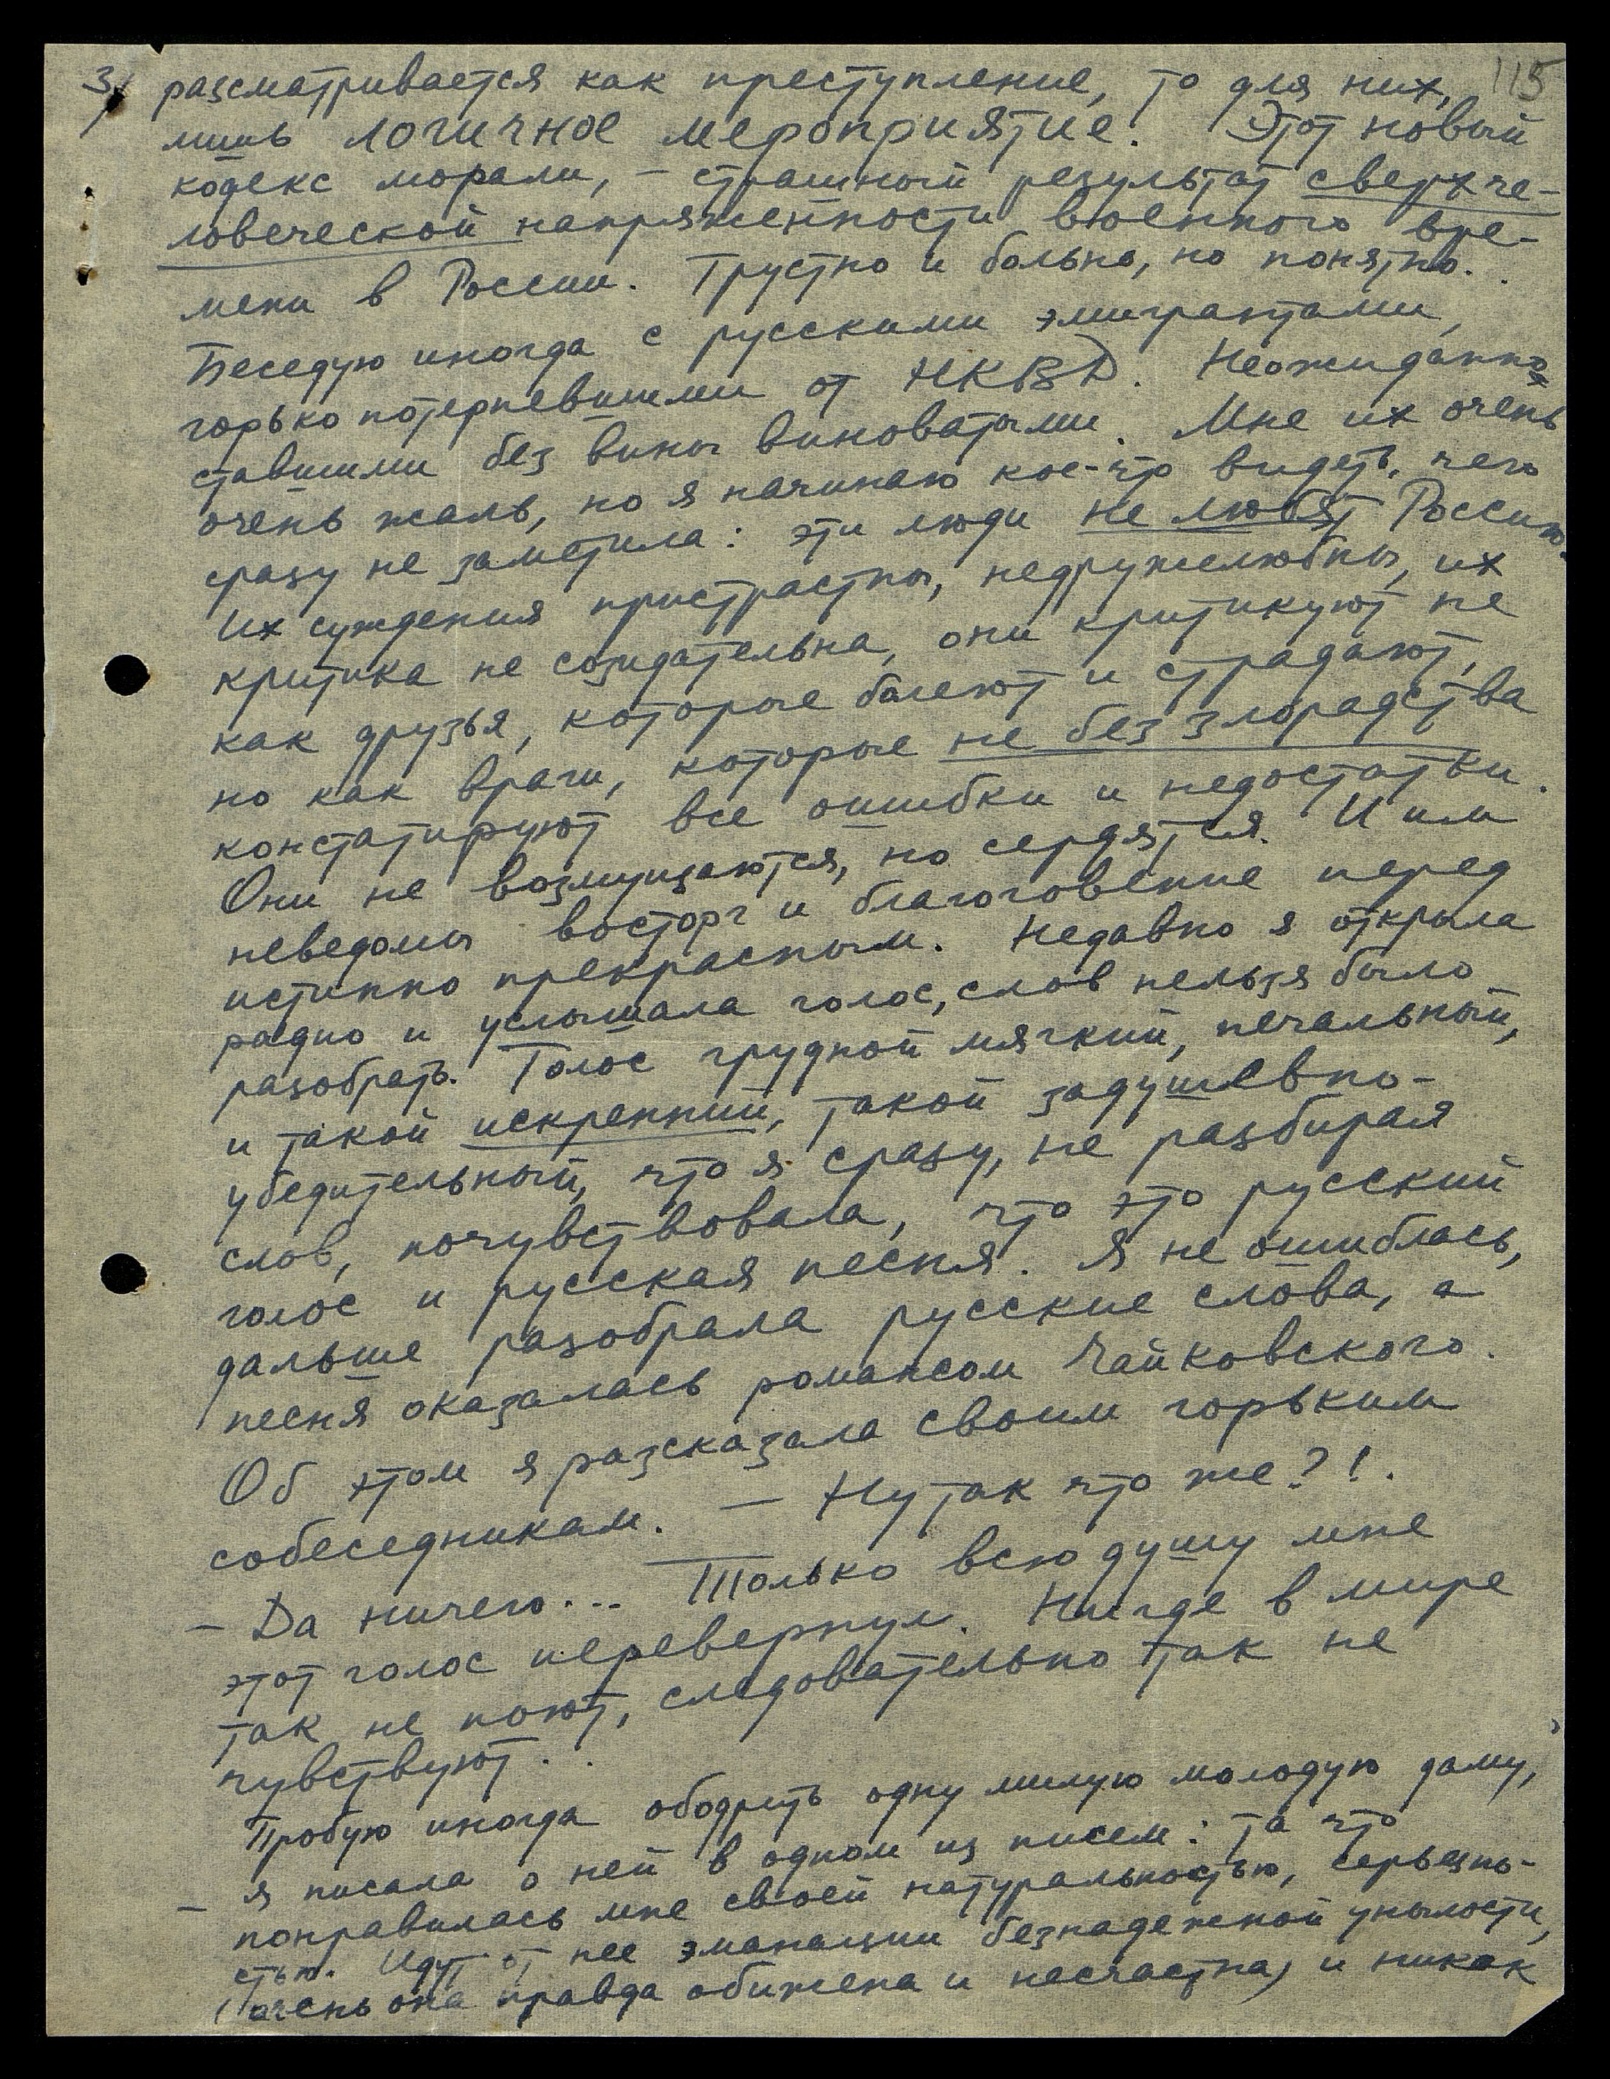 3/ разсматривается как преступление, то для них, 115
лишь логичное мероприятие. Этот новый
кодекс морали, – страшный результат сверхче-
ловеческой напряженности военного вре-
мени в России. Грустно и больно, но понятно.
Беседую иногда с русскими эмигрантами,
горько потерпевшими от НКВД. Неожиданно
ставшими без вины виноватыми. Мне их очень
очень жаль, но я начинаю кое-что видеть, чего
сразу не заметила: эти люди не любят Россию.
Их суждения пристрастны, недружелюбны, их
критика не созидательна, они критикуют не
как друзья, которые болеют и страдают,
но как враги, которые не без злорадства
констатируют все ошибки и недостатки.
Они не возмущаются, но сердятся. И им
неведомы восторг и благоговение перед
истинно прекрасным. Недавно я открыла
радио и услышала голос, слов нельзя было
разобрать. Голос грудной мягкий, печальный,
и такой искренний, такой задушевно-
убедительный, что я сразу, не разбирая
слов, почувствовала, что это русский
голос и русская песня. Я не ошиблась,
дальше разобрала русские слова, а
песня оказалась романсом Чайковского.
Об этом я разсказала своим горьким
собеседникам. – Ну так что же?!.
– Да ничего... Только всю душу мне
этот голос перевернул. Нигде в мире
так не поют, следовательно так не
чувствуют.
Пробую иногда ободрить одну милую молодую даму,
– я писала о ней в одном из писем: та что
понравилась мне своей натуральностью, серьезно-
стью. Идут от нее эманации безнадежной унылости,
(очень она правда обижена и несчастна) и никак